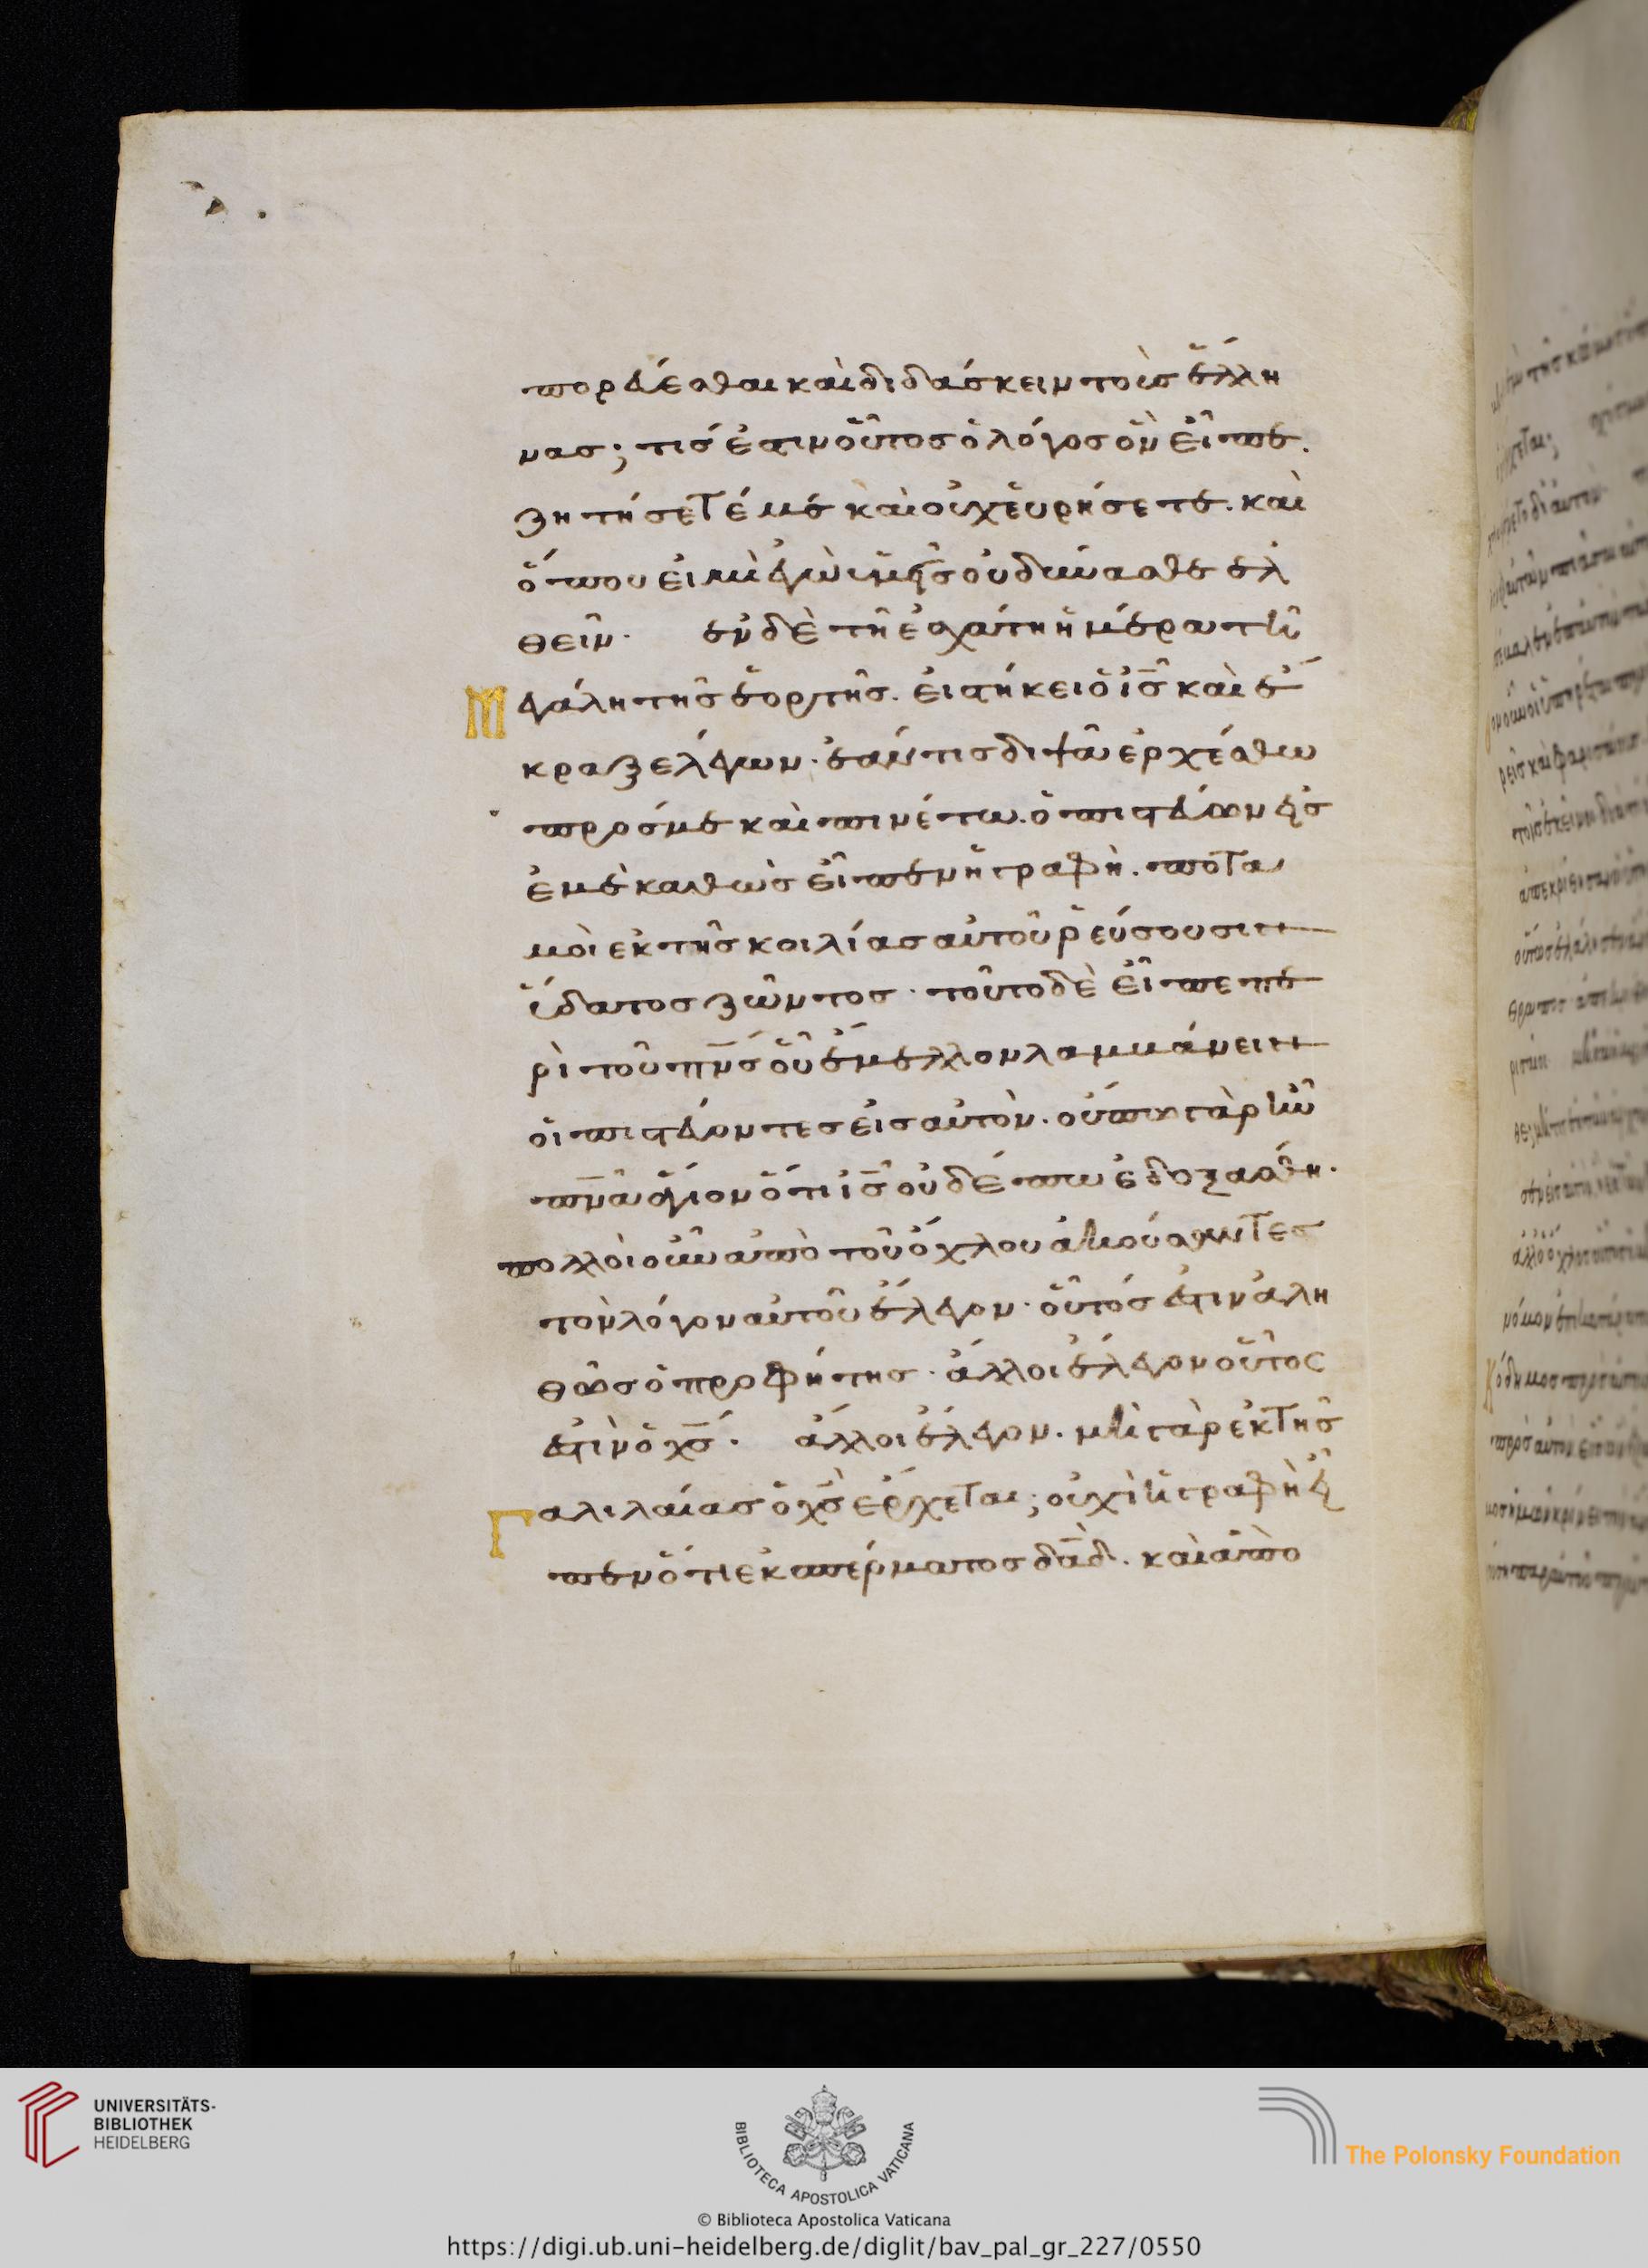 πορεύεσθαι καὶ διδάσκειν τοὺς ἕλλη
νας; τίς ἐστιν οὗτος ὁ λόγος ὃν εἶπε.
ζητήσετέ με καὶ οὐχ εὑρήσετε. καὶ
ὅπου εἰμὶ ἐγὼ ὑμεῖς οὐ δύνασθε ἐλ
θεῖν. ἐν δὲ τῇ ἐσχάτῃ ἡμέρα τῇ
Μεγάλη τῆς ἑορτῆς. εἱστήκει ὁ ις καὶ ἔ
κραζε λέγων. ἐάν τις διψᾶ ἐρχέσθω
πρός με καὶ πινέτω. ὁ πιστεύων εἰς
ἐμὲ καθὼς εἶπεν ἡ γραφὴ. ποτα
μοὶ ἐκ τῆς κοιλίας αὐτοῦ ῥεύσουσιν
ὕδατος ζῶντος. τοῦτο δὲ εἶπε πε
ρὶ τοῦ πνς οὗ ἔμελλον λαμβάνειν
οἱ πιστεύοντες εἰς αὐτὸν. οὔπω γὰρ ἦν
πνα ἅγιον ὅτι ις οὐδέπω ἐδοξάσθη.
πολλοὶ οὖν ἀπὸ τοῦ ὄχλου ἀκούσαντες
τὸν λόγον αὐτοῦ ἔλεγον. οὗτός ἐστιν ἀλη
θῶς ὁ προφήτης. ἄλλοι ἔλεγον οὗτος
ἐστὶν ὁ χς. ἄλλοι ἔλεγον. μὴ γὰρ ἐκ τῆς
Γαλιλαίας ὁ χς ἔρχεται; οὐχὶ ἡ γραφὴ εἶ
πεν ὅτι ἐκ σπέρματος δαδ. καὶ ἀπὸ
UNIVERSITÄTS-
BIBLIOTHEK
HEIDELBERG
BIBLIOTECA APOSTOLICA VATICANA
The Polonsky Foundation
© Biblioteca Apostolica Vaticana
https://digi.ub.uni-heidelberg.de/diglit/bav_pal_gr_227/0550